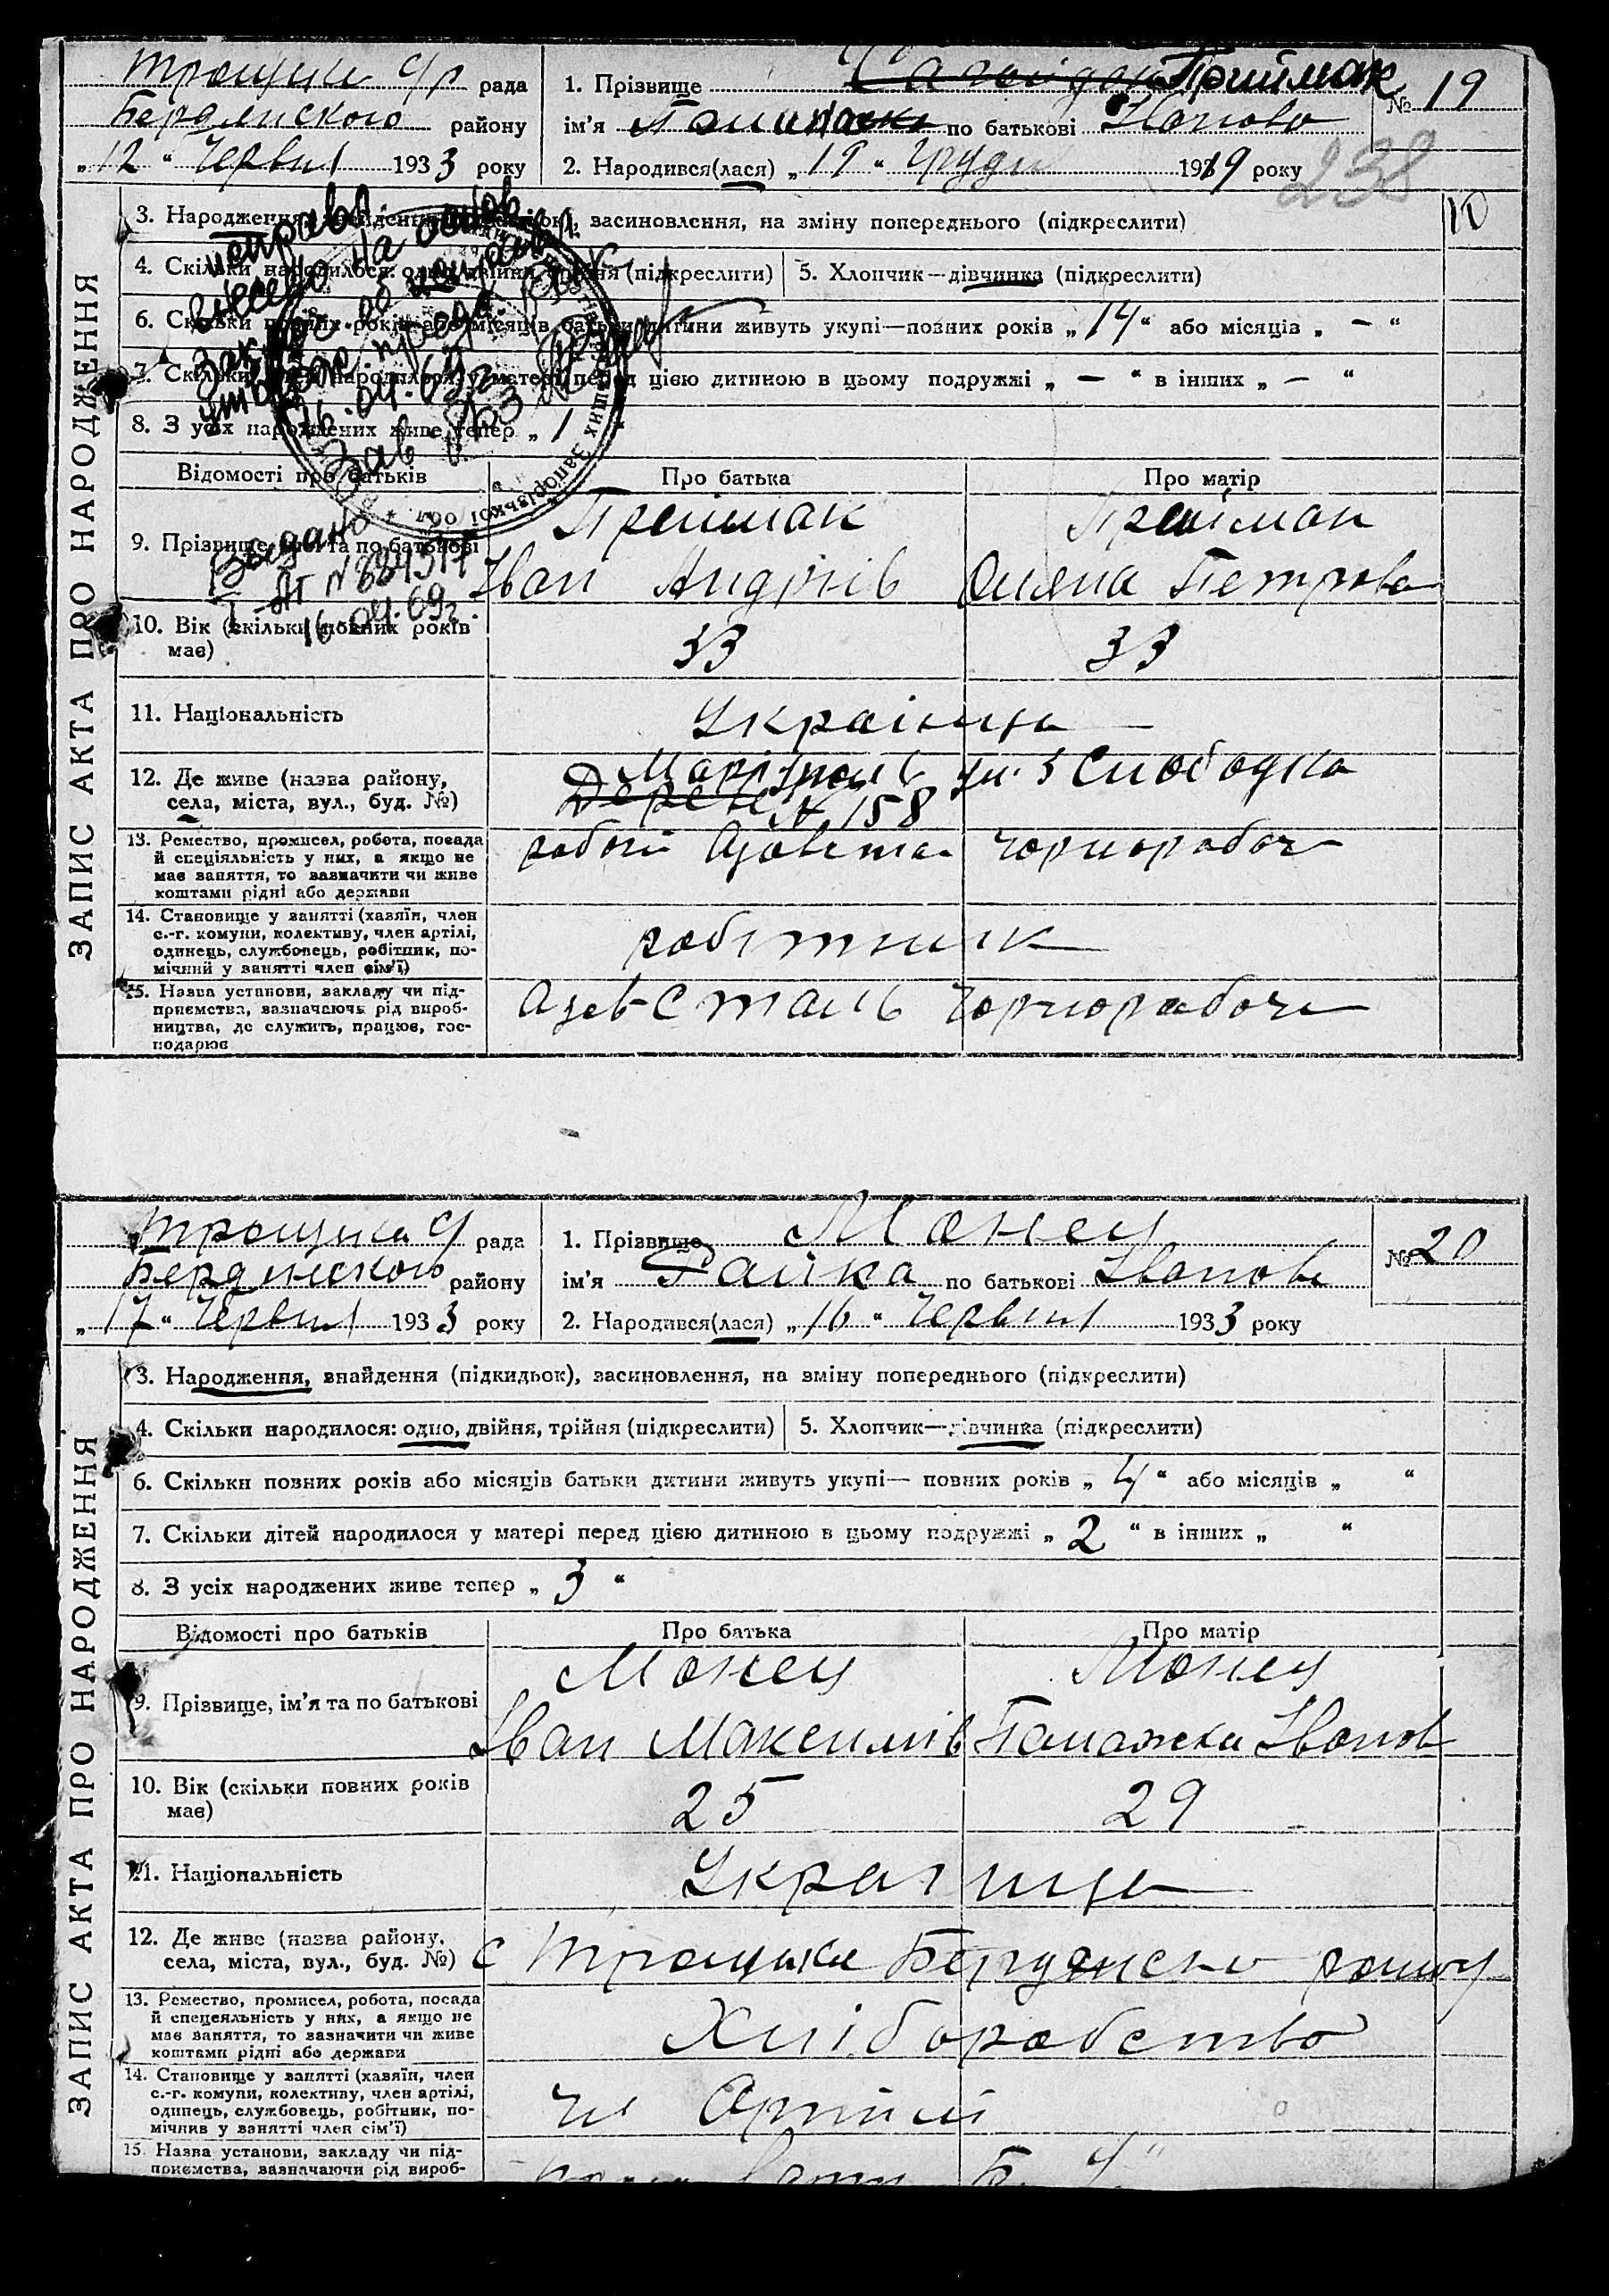 рада
Бердянского району
„12“ Червня 1933 року
1. Прізвище Приймак
ім’я по батькові Іванова
2. Народився(лася) „19“ Грудня 1919 року
№ 19
238
10
ЗАПИС АКТА ПРО НАРОДЖЕННЯ
3. Народження, засиновлення, на зміну попереднього (підкреслити)
4. Скільки народилося: одно, двійня, трійня (підкреслити)
5. Хлопчик—дівчинка (підкреслити)
6. Скільки повних років або місяців батьки дитини живуть укупі—повних років „14“ або місяців „ — “
7. Скільки народилося у матері перед цією дитиною в цьому подружжі „ — “ в інших „ — “
8. З усіх народжених живе тепер „1
исправл.
внесено на основ
16.04.69г.
Зав.
Запорізької обл.
Выдано
№ 884517
16.04.69г.
Відомості про батьків
Про батька
Про матір
9. Прізвище, ім’я та по батькові
Приймак
Приймак
Іван Андріїв
Оляна Петрова
10. Вік (скільки повних років має)
33
33
11. Національність
Українці
12. Де живе (назва району, села, міста, вул., буд. №)
Маріуполь Слободка
№ 158
13. Ремество, промисел, робота, посада й спеціяльність у них, а якщо не має заняття, то зазначити чи живе коштами рідні або держави
робочий Азовсталь
чорнорабоч
14. Становище у занятті (хазяїн, член с.-г. комуни, колективу, член артілі, одинець, службовець, робітник, помічний у занятті член сім’ї)
робітник
15. Назва установи, закладу чи підприємства, зазначаючи рід виробництва, де служить, працює, господарює
Азов-Сталь
Чорнорабоч
рада
Бердянского району
„17“ Червня 1933 року
1. Прізвище Монец
ім’я Раиса по батькові Іванов
2. Народився(лася) „16“ Червня 1933 року
№ 20
ЗАПИС АКТА ПРО НАРОДЖЕННЯ
3. Народження, знайдення (підкидьок), засиновлення, на зміну попереднього (підкреслити)
4. Скільки народилося: одно, двійня, трійня (підкреслити)
5. Хлопчик—дівчинка (підкреслити)
6. Скільки повних років або місяців батьки дитини живуть укупі— повних років „4“ або місяців „ “
7. Скільки дітей народилося у матері перед цією дитиною в цьому подружжі „2“ в інших „ “
8. З усіх народжених живе тепер „3“
Відомості про батьків
Про батька
Про матір
9. Прізвище, ім’я та по батькові
Монец
Монец
Іван Максимів
Палажка Іванов
10. Вік (скільки повних років має)
25
29
11. Національність
Українці
12. Де живе (назва району, села, міста, вул., буд. №)
с Троцьке Бердянско району
13. Ремество, промисел, робота, посада й спецеяльність у них, а якщо не має заняття, то зазначити чи живе коштами рідні або держави
Хліборобство
14. Становище у занятті (хазяїн, член с.-г. комуни, колективу, член артілі, одинець, службовець, робітник, помічнив у занятті член сім’ї)
чл Артілі
15. Назва установи, закладу чи підприємства, зазначаючи рід вироб-